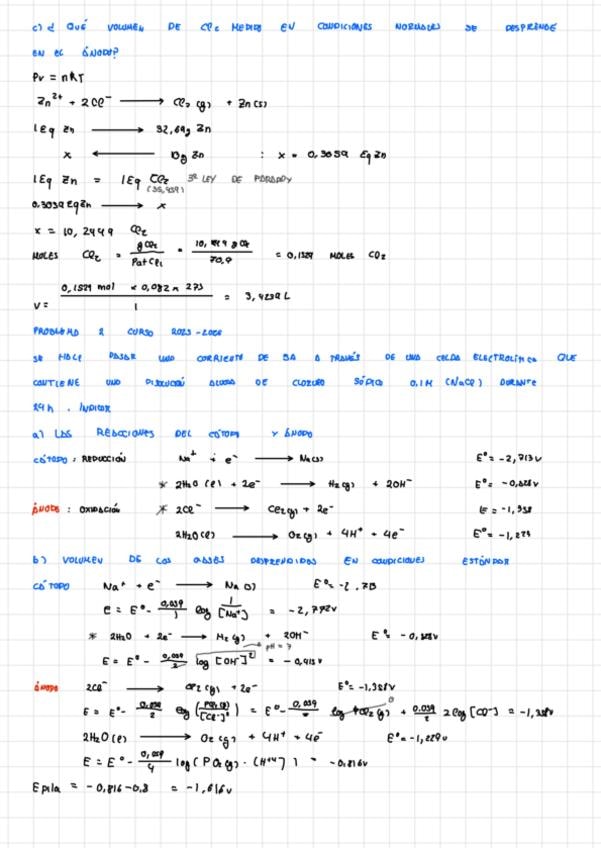 c) ¿ QUÉ VOLUMEN DE Cl₂ MEDIDO EN CONDICIONES NORMALES SE DESPRENDE
EN EL ÁNODO?
PV = nRT
Zn²⁺ + 2Cl⁻ ⟶ Cl₂ (g) + Zn(s)
1Eq Zn ⟶ 32,69g Zn
x ⟵ 10g Zn : x = 0,3059 Eq Zn
1Eq Zn = 1Eq Cl₂ 3ª LEY DE FARADAY
(35,45g)
⟶ x
x = 10, Cl₂
MOLES Cl₂ = = 0,1529 MOLES Cl₂
V = 0,1529 mol × 0,082 × 273 / 1 = 3,4232 L
PROBLEMA 2 CURSO 2023-2024
SE HACE PASAR UNA CORRIENTE DE 5A A TRAVÉS DE UNA CELDA ELECTROLÍTICA QUE
CONTIENE UNA DISOLUCIÓN ACUOSA DE CLORURO SÓDICO 0,1M (NaCl) DURANTE
24h . INDICAR
a) LAS REACCIONES DEL CÁTODO Y ÁNODO
CÁTODO : REDUCCIÓN Na⁺ + e⁻ ⟶ Na(s) E°= -2,713V
* 2H₂O (l) + 2e⁻ ⟶ H₂(g) + 2OH⁻ E°= -0,828V
ÁNODO : OXIDACIÓN * 2Cl⁻ ⟶ Cl₂(g) + 2e⁻ E = -1,358
2H₂O(l) ⟶ O₂(g) + 4H⁺ + 4e⁻ E°= -1,229
b) VOLUMEN DE LOS GASES DESPRENDIDOS EN CONDICIONES ESTÁNDAR
CÁTODO Na⁺ + e⁻ ⟶ Na (s) E°= -2,713
E = E° - 0,059/1 log 1/[Na⁺] = -2,772V
* 2H₂O + 2e⁻ ⟶ H₂(g) + 2OH⁻ E°= -0,828V
pH = 7
E = E° - 0,059/2 log [OH⁻]² = -0,415V
ÁNODO 2Cl⁻ ⟶ Cl₂ (g) + 2e⁻ E°= -1,358V
2H₂O (l) ⟶ O₂ (g) + 4H⁺ + 4e⁻ E°= -1,229V
E = E° - 0,059/4 log (PO₂(g) · (H⁺⁴) ) = -0,816V
Epila = -0,816-0,8 = -1,616V